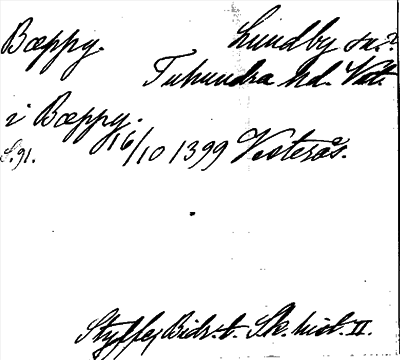 Bœppy. Lundby sn.?
Tuhundra hd. Vstm.
i Bœppy.
S.91. 16/10 1399 Vesterås.
Styffe, Bidr. t. Sk. hist. II.